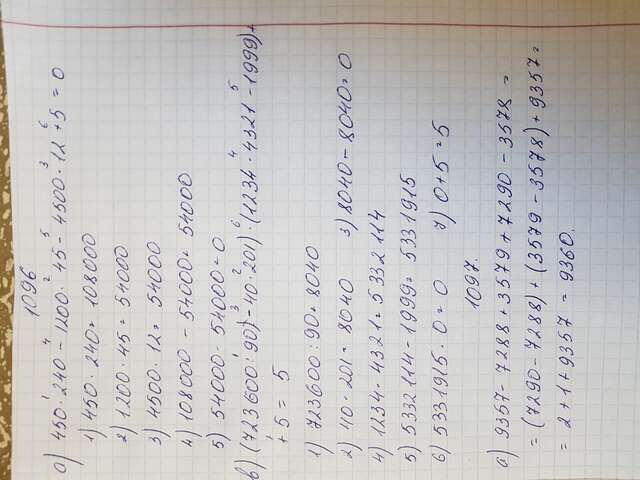 1096
а) 450 · 240 - 1200 · 45 - 4500 · 12 + 5 = 0
1) 450 · 240 = 108000
2) 1200 · 45 = 54000
3) 4500 · 12 = 54000
4) 108000 - 54000 = 54000
5) 54000 - 54000 = 0
в) (723600 : 90) - 40 · 201) · (1234 · 4321 - 1999) +
+ 5 = 5
1) 723600 : 90 = 8040
2) 40 · 201 = 8040 3) 8040 - 8040 = 0
4) 1234 · 4321 = 5332114
5) 5332114 - 1999 = 5331915
6) 5331915 · 0 = 0 7) 0 + 5 = 5
1097.
а) 9357 - 7288 + 3579 + 7290 - 3578 =
= (7290 - 7288) + (3579 - 3578) + 9357 =
= 2 + 1 + 9357 = 9360.